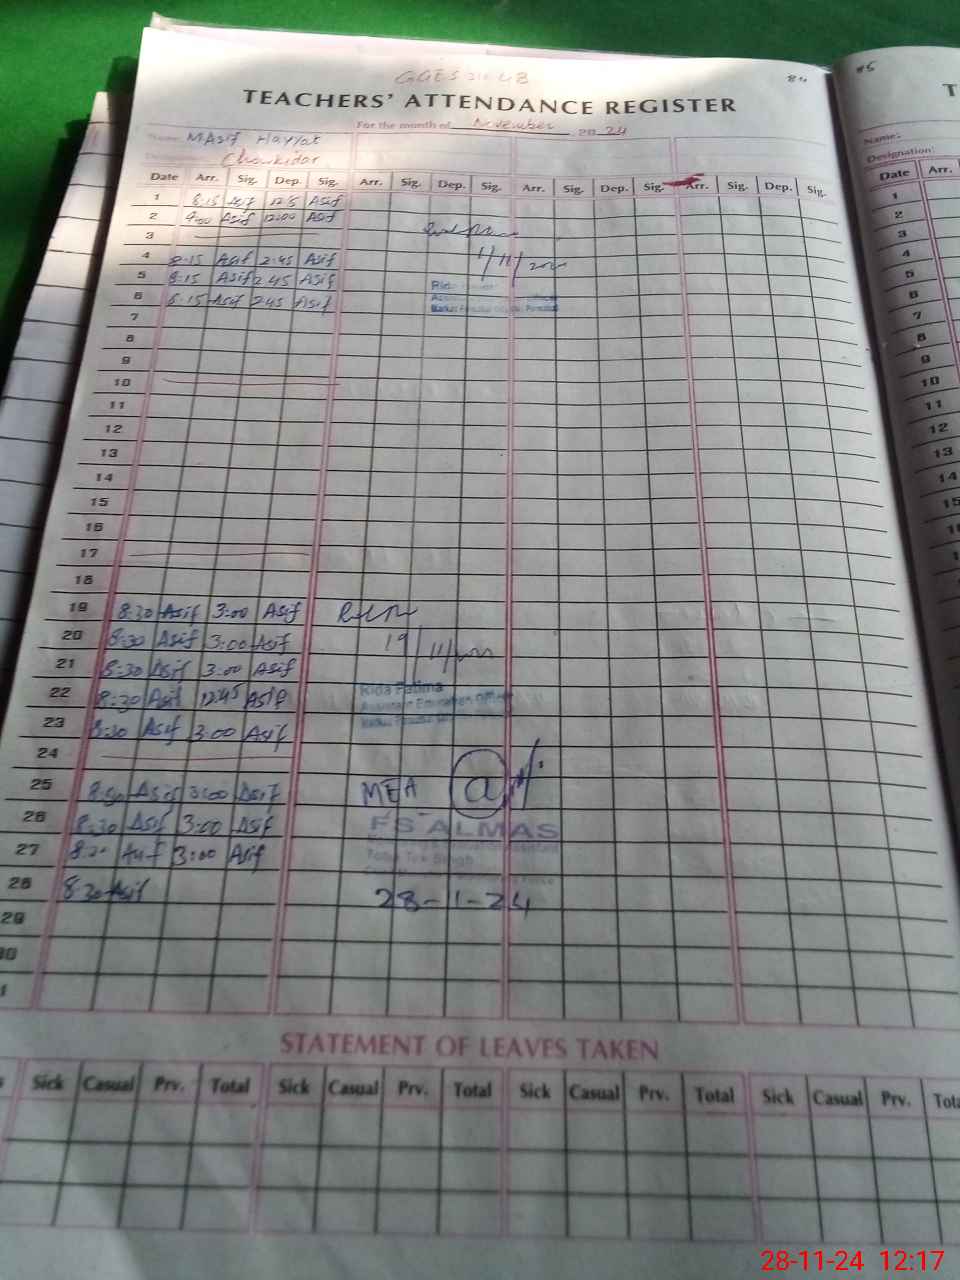 GGES 316 GB
84
TEACHERS' ATTENDANCE REGISTER
For the month of November 2024
Name: M Asif Hayyat
Chowkidar
Date Arr. Sig. Dep. Sig. Arr. Sig. Dep. Sig. Arr. Sig. Dep. Sig. Arr. Sig. Dep. Sig.
1 8:15 Asif Asif
2 Asif 12:00 Asif
3
4 8:15 Asif 2:45 Asif
11/11/
5 8:15 Asif 2:45 Asif
6 8:15 Asif 2:45 Asif
7
8
9
10
11
12
13
14
15
16
17
18
19 8:30 Asif 3:00 Asif
20 8:30 Asif 3:00 Asif
19/11/
21 8:30 Asif 3:00 Asif
22 8:30 Asif 12:45 Asif
Rida Fatima
Assistant Education Officer
23 8:30 Asif 3:00 Asif
24
25 8:30 Asif 3:00 Asif
MEA
26 8:30 Asif 3:00 Asif
ALMAS
27 8:30 Asif 3:00 Asif
Toba Tek Singh
28 8:30 Asif
28-11-24
29
30
STATEMENT OF LEAVES TAKEN
Sick Casual Prv. Total Sick Casual Prv. Total Sick Casual Prv. Total Sick Casual Prv.
85
Name:
Designation:
Date Arr.
1
2
3
4
5
6
7
8
9
10
11
12
13
14
15
28-11-24 12:17